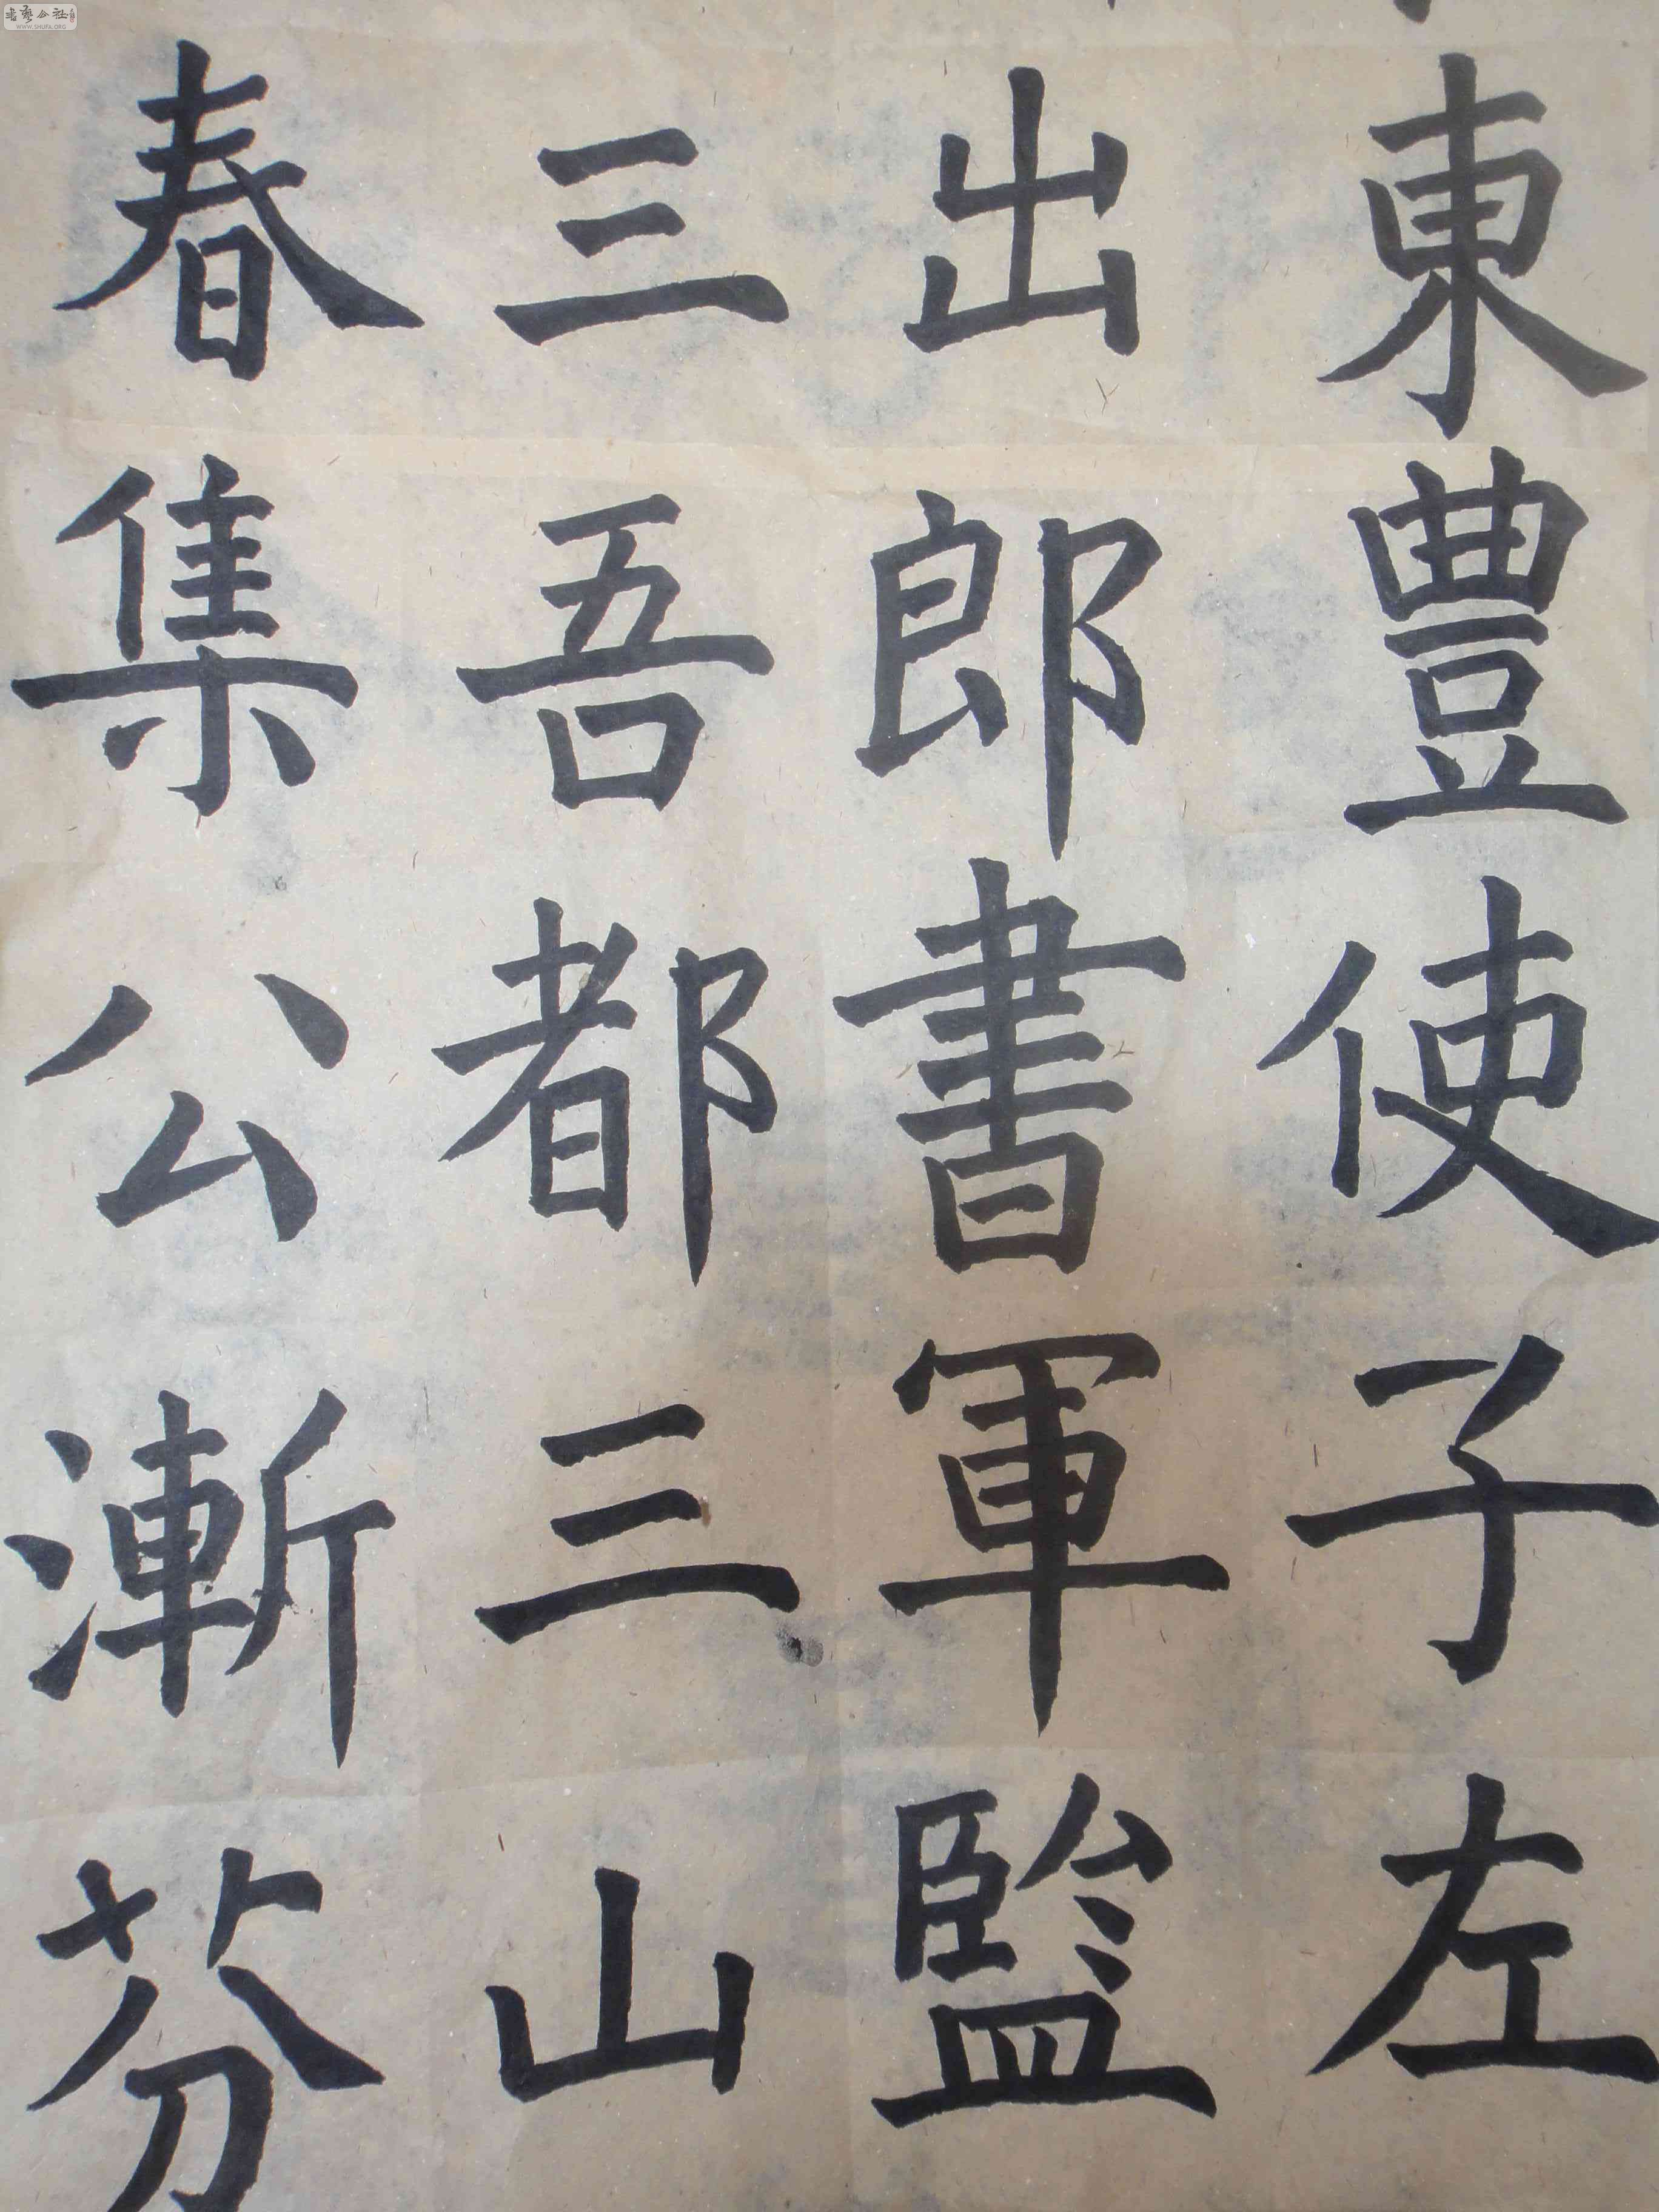 東豊使子左
出郎書軍監
三吾都三山
春集公漸芬
WWW.SHUFA.ORG